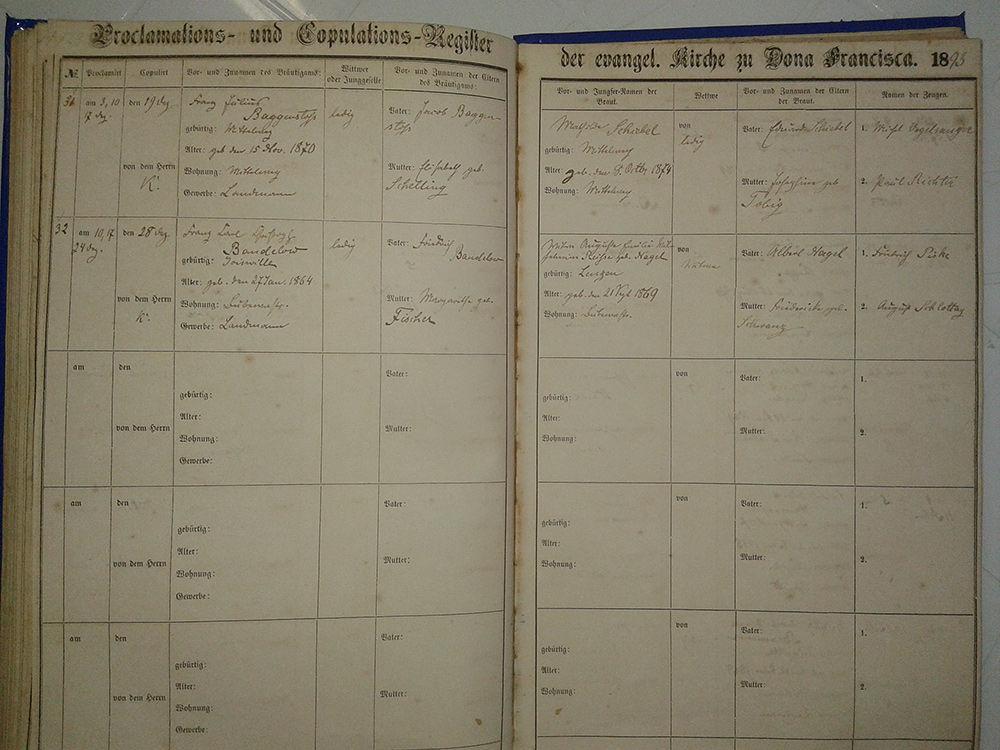 Proclamations- und Copulations-Register
der evangel. Kirche zu Dona Francisca. 1895
№ Proclamirt Copulirt Vor- und Zunamen des Bräutigams: Wittwer oder Junggeselle Vor- und Zunamen der Eltern des Bräutigams:
Vor- und Jungfer-Namen der Braut. Wittwe Vor- und Zunamen der Eltern der Braut. Namen der Zeugen.
31 am 3, 10 den 19 Dez. Franz Julius ledig Vater: Jacob Baggen
17 dez. Baggenstoss stoss
gebürtig:
Alter: geb den 15 Nov. 1870
von dem Herrn Wohnung: Mutter: Elisabeth geb.
K. Gewerbe: Landmann Schelling
Mathilde Schiebel von ledig Vater: Eduard Schiebel 1. Vogelsanger
gebürtig:
Alter: geb. den 8. Octbr 1874
Wohnung: Mutter: Josephine geb 2. Paul Richter
Tobig
32 am 10, 17 den 28 Dez Franz Carl ledig Vater: Friedrich
24 dez. Bandelow Bandelow
gebürtig: Joinville
Alter: geb. den 27 Jan. 1864
von dem Herrn Wohnung: Mutter: Margarethe geb.
K. Gewerbe: Landmann Fischer
Auguste Emilie von Vater: Albert Hagel 1. Friedrich
geb. Hagel
gebürtig:
Alter: geb. den 21 Sept 1869
Wohnung: Mutter: Friederike geb. 2. August Schlottag
am den Vater:
gebürtig:
Alter:
von dem Herrn Mutter:
Wohnung:
Gewerbe:
von Vater: 1.
gebürtig:
Alter:
Wohnung: Mutter: 2.
am den Vater:
gebürtig:
Alter:
von dem Herrn Mutter:
Wohnung:
Gewerbe:
von Vater: 1.
gebürtig:
Alter:
Wohnung: Mutter: 2.
am den Vater:
gebürtig:
Alter:
von dem Herrn Mutter:
Wohnung:
Gewerbe:
von Vater: 1.
gebürtig:
Alter:
Wohnung: Mutter: 2.